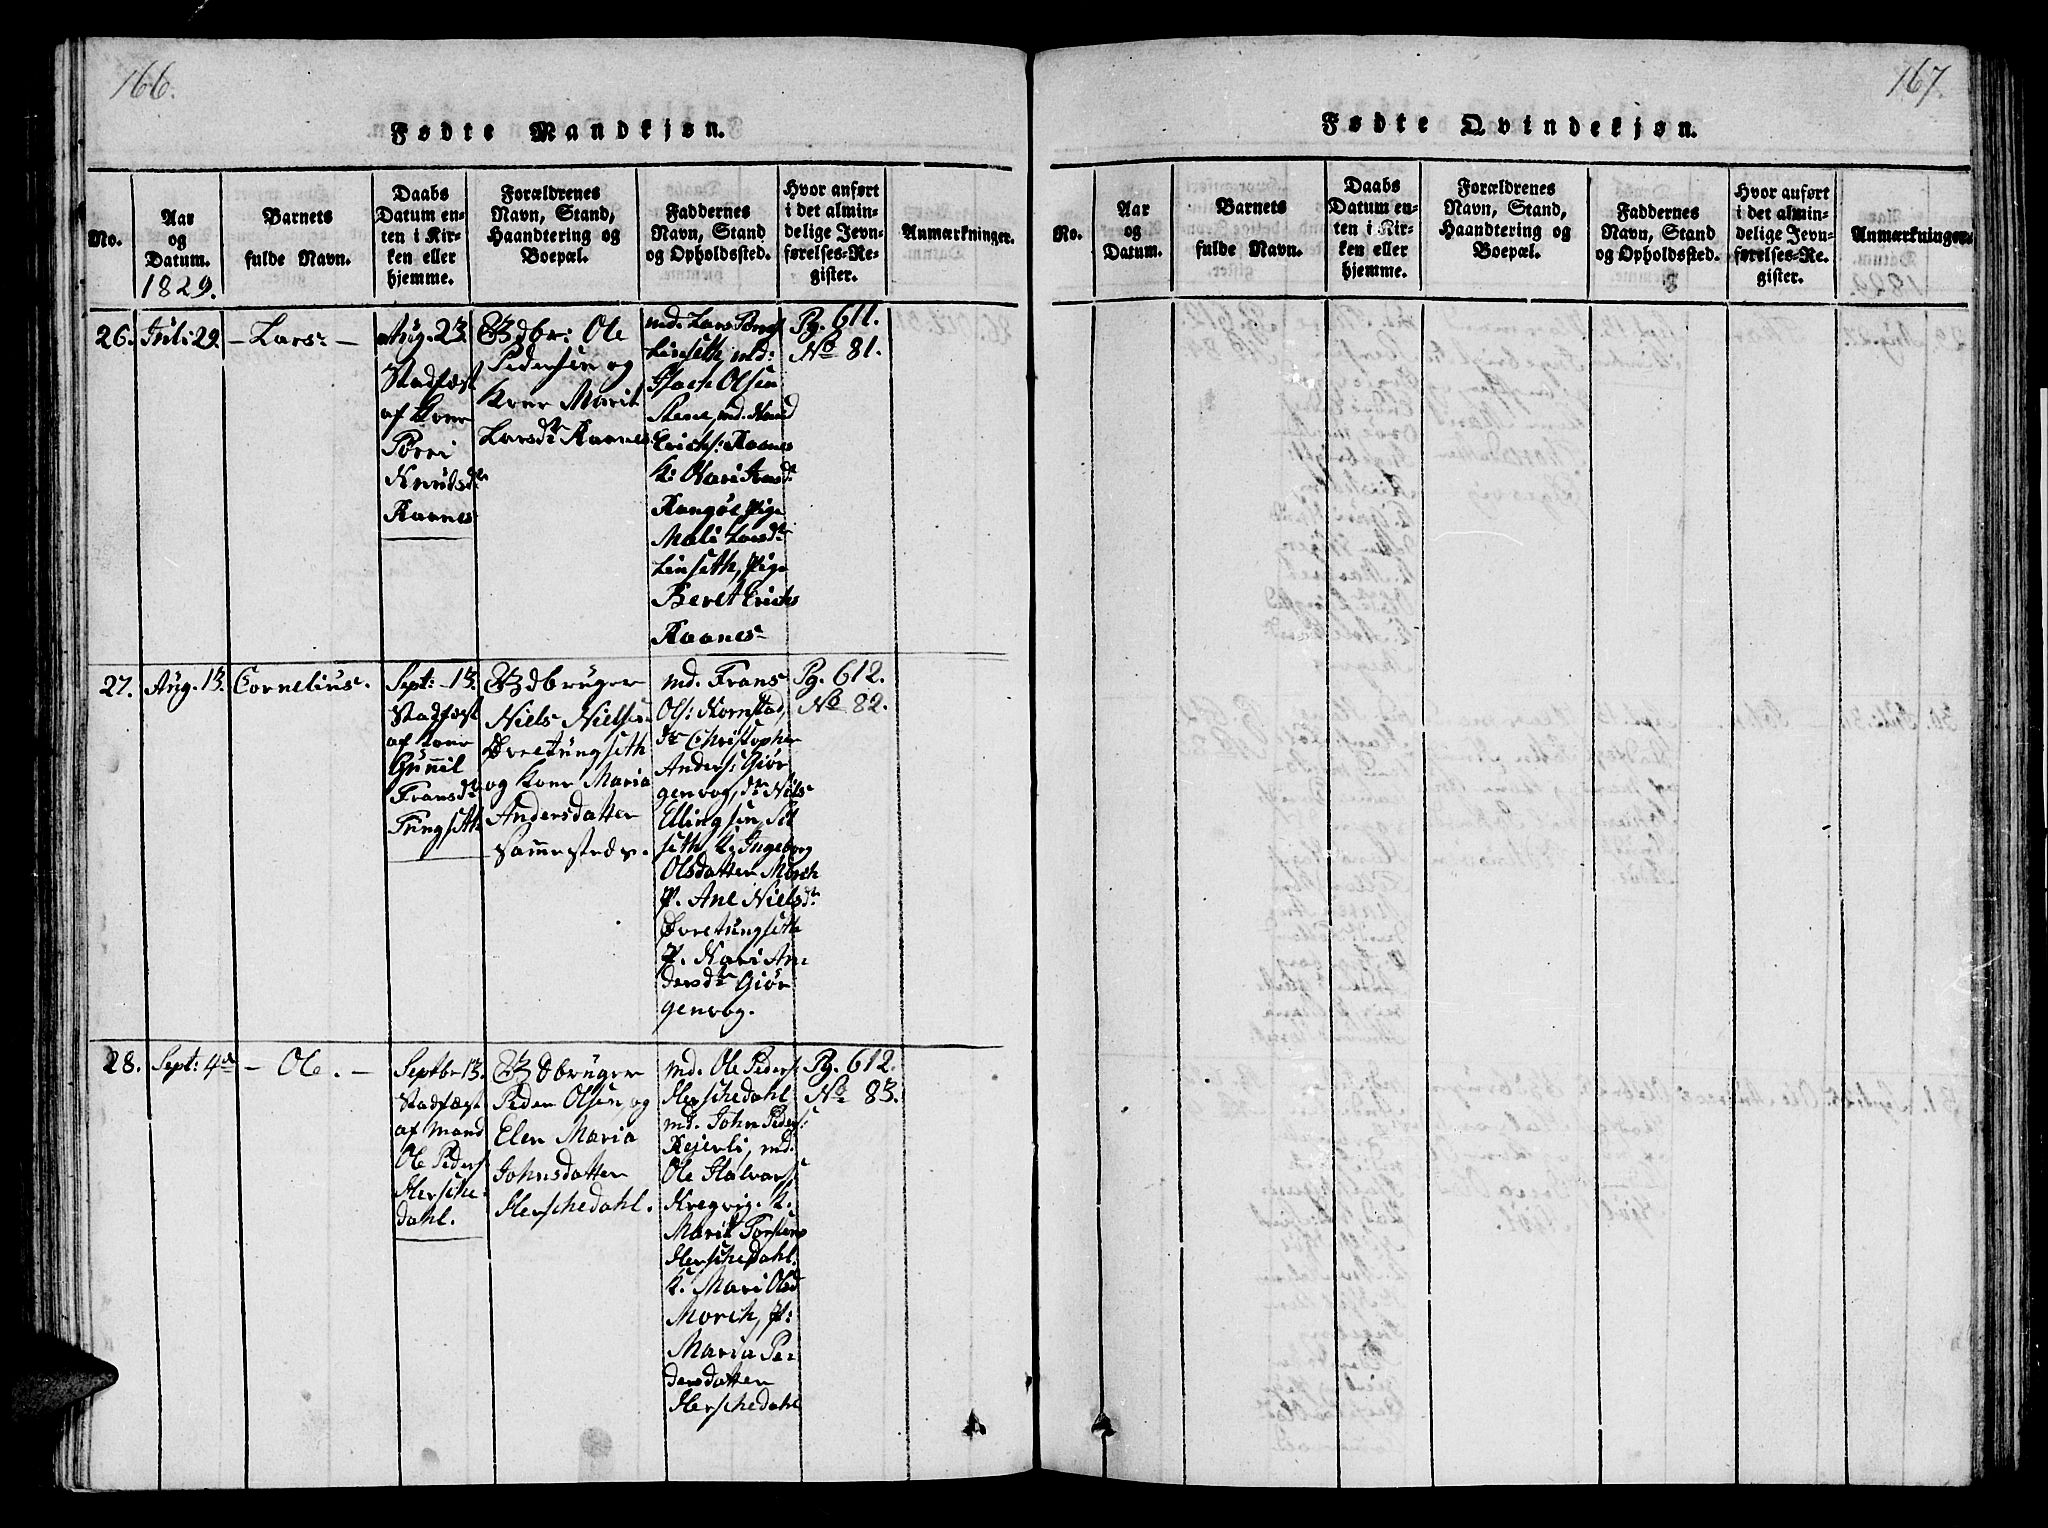 166.
Fødte Mandkjøn.
No.
Aar
og
Datum.
1829.
Barnets
fulde Navn.
Daabs
Datum en-
ten i Kir-
ken eller
hjemme.
Forældrenes
Navn, Stand,
Haandtering og
Boepæl.
Faddernes
Navn, Stand
og Opholdssted.
Hvor anført
i det almin-
delige Jevn-
førelses-Re-
gister.
Anmærkninger.
26.
Juli 29.
- Lars -
Aug. 23.
Stadfæst
af Kone
Knudsdr
Raanes
Gdbr: Ole
Pedersen og
Kone Marit
Larsdr Raanes
md. Lars
Linseth, md:
Olsen
md. Knud
Erichs: Raanes
K: Mari
Pige
Mali Larsdr
Linseth, Pige
Beret Erichs
Raanes
Pg. 611.
No 81.
27.
Aug. 13.
Cornelius.
Sept: 13.
Stadfæst
af Kone
Gunnil
Fransdr
Tungseth
Gdbruger
Niels Nielsen
Øvretungseth
og Kone Maria
Andersdatter
Sammesteds.
md. Frans
Ols: Kornstad,
Dr Christopher
Anders: Giør
genvog, Dr Niels
Ellingsen, Sil
seth, K: Ingeborg
Olsdatter Morch
P. Ane Nielsdr
Øvretungseth
P. Kari An
dersdr Giør
genvog.
Pg. 612.
No 82.
28.
Sept: 4de
- Ole. -
Septbr 13.
Stadfæst
af Mand
Ole Peders
Hersche
dahl.
Gdbruger
Peder Olsen og
Elen Maria
Johnsdatter
Herschedahl.
md. Ole Peders
Herschedahl
md. John Peders:
Rejerli, md.
Ole Halvars
Kregvig. K.
Marit Torstens
Herschedahl.
K. Mari Olsd
Morch, P:
Maria Pe
dersdatter
Herschedahl
Pg. 612.
No 83.
167.
Fødte Qvindekjøn.
No.
Aar
og
Datum.
Barnets
fulde Navn.
Daabs
Datum en-
ten i Kir-
ken eller
hjemme.
Forældrenes
Navn, Stand,
Haandtering og
Boepæl.
Faddernes
Navn, Stand
og Opholdssted.
Hvor anført
i det almin-
delige Jevn-
førelses-Re-
gister.
Anmærkninger.